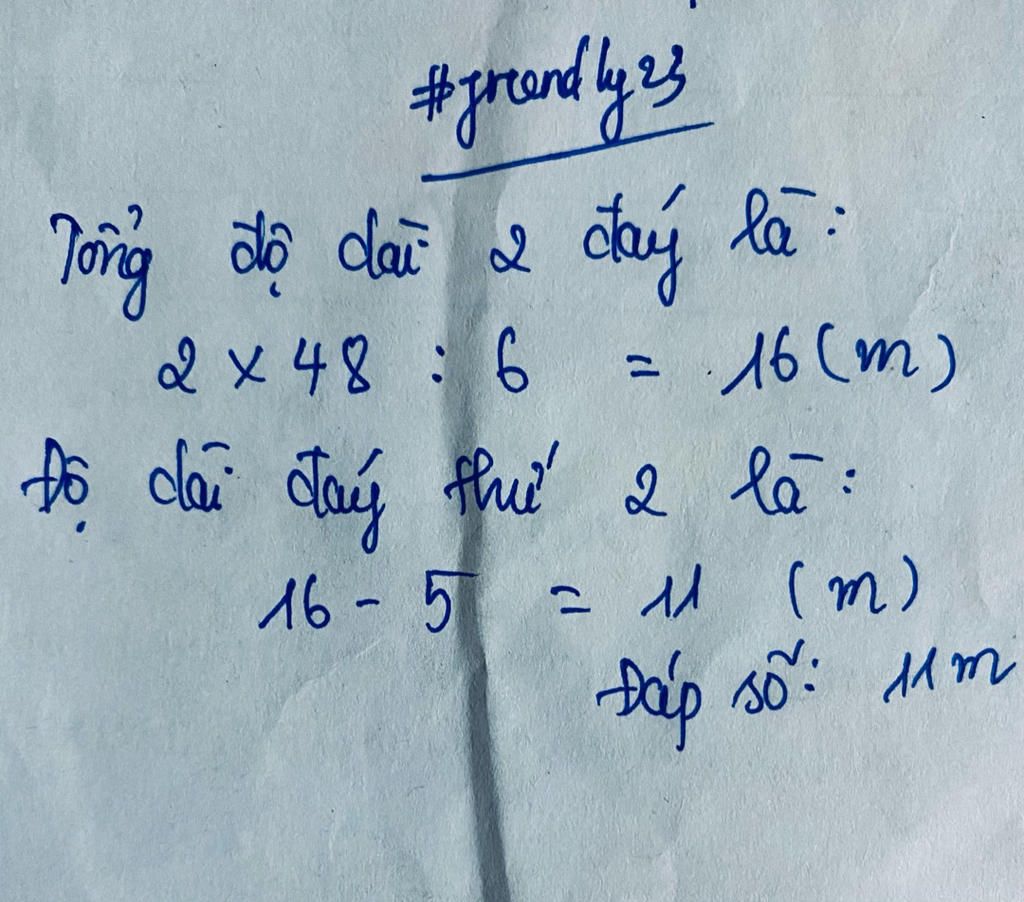 #friendly23
Tổng độ dài 2 đáy là:
2 x 48 : 6 = 16 (m)
Độ dài đáy thứ 2 là:
16 - 5 = 11 (m)
Đáp số: 11m